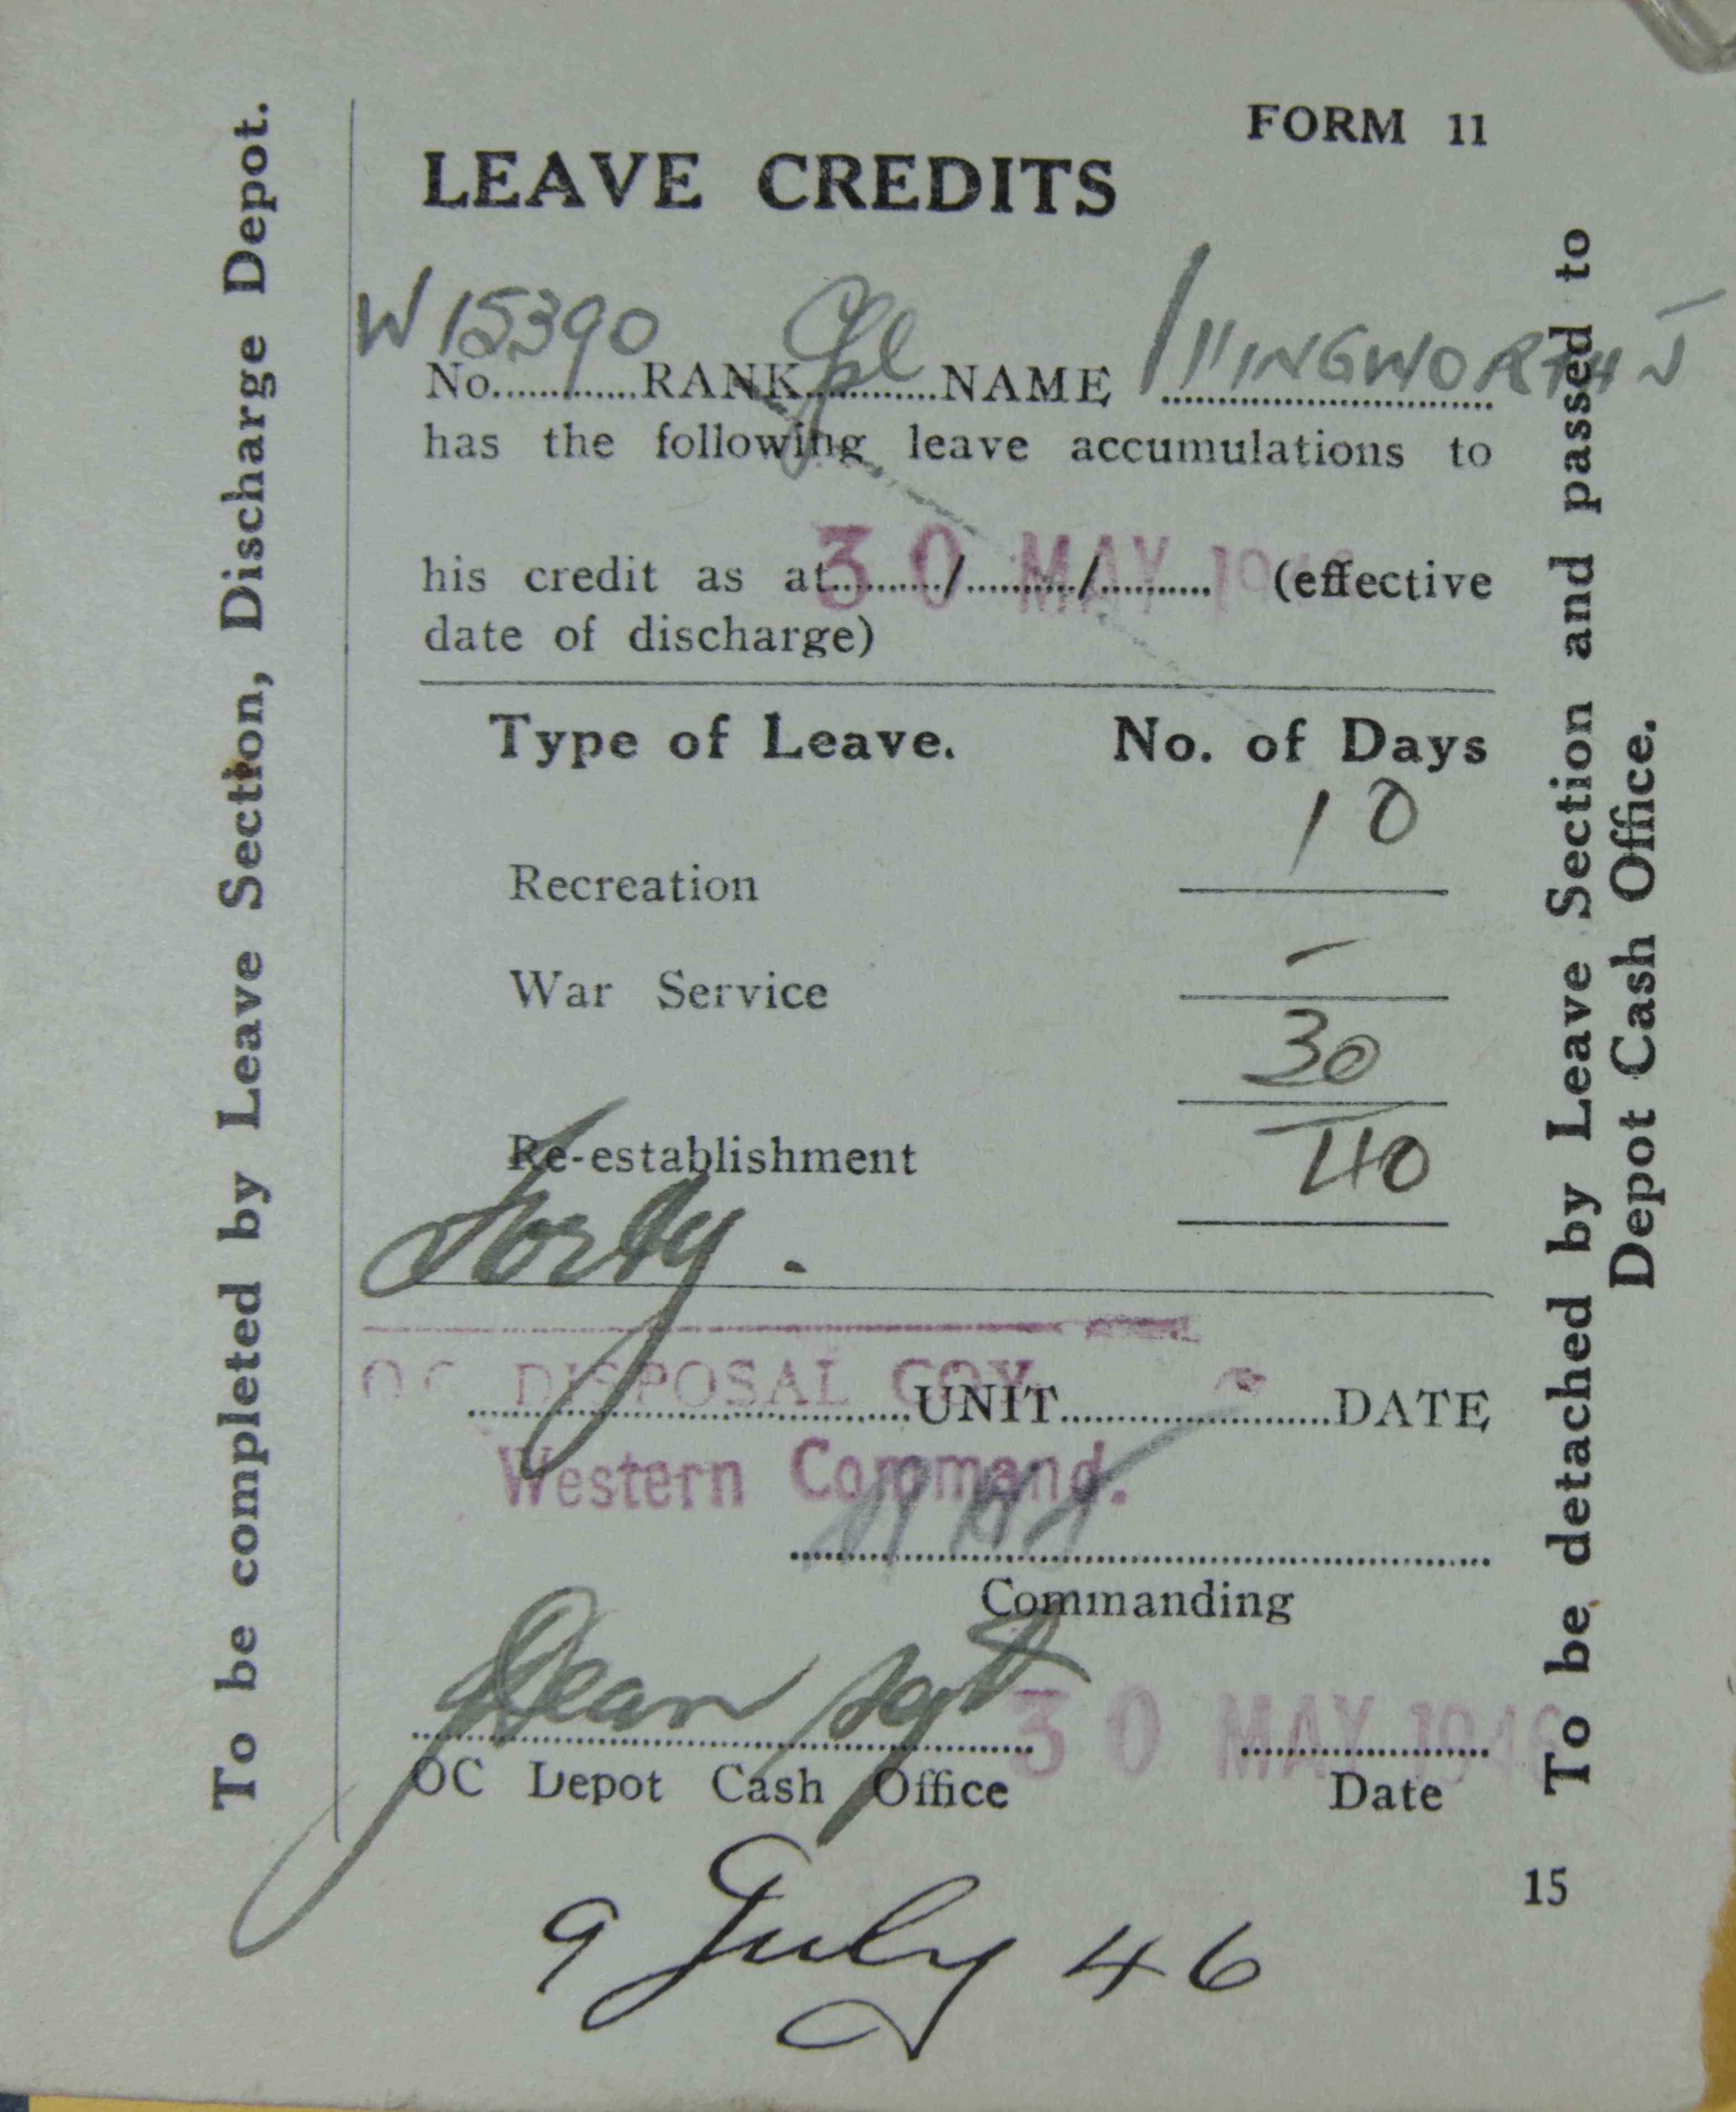 FORM 11
LEAVE CREDITS
W15390 Cpl IllINGWORTH J
No.............RANK............NAME ..............................
has the following leave accumulations to
30 MAY 1946
his credit as at........../........../.......... (effective
date of discharge)
Type of Leave. No. of Days
Recreation 10
War Service –
30
Re-establishment 40
Forty.
OC DISPOSAL COY
........................................UNIT........................DATE
Western Command.
Commanding
Dean Sgt 30 MAY 1946
OC Depot Cash Office Date
15
9 July 46
To be completed by Leave Section, Discharge Depot.
To be detached by Leave Section and passed to
Depot Cash Office.